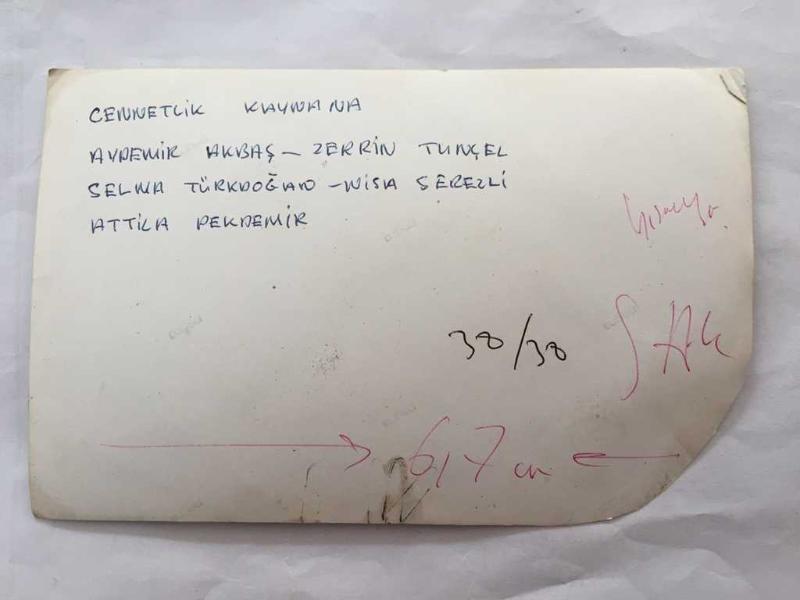 CENNETLİK KAYNANA
AYDEMİR AKBAŞ - ZERRİN TUNÇEL
SELMA TÜRKDOĞAN - NİSA SEREZLİ
ATTİLA PEKDEMİR
38/38
6,7 cm